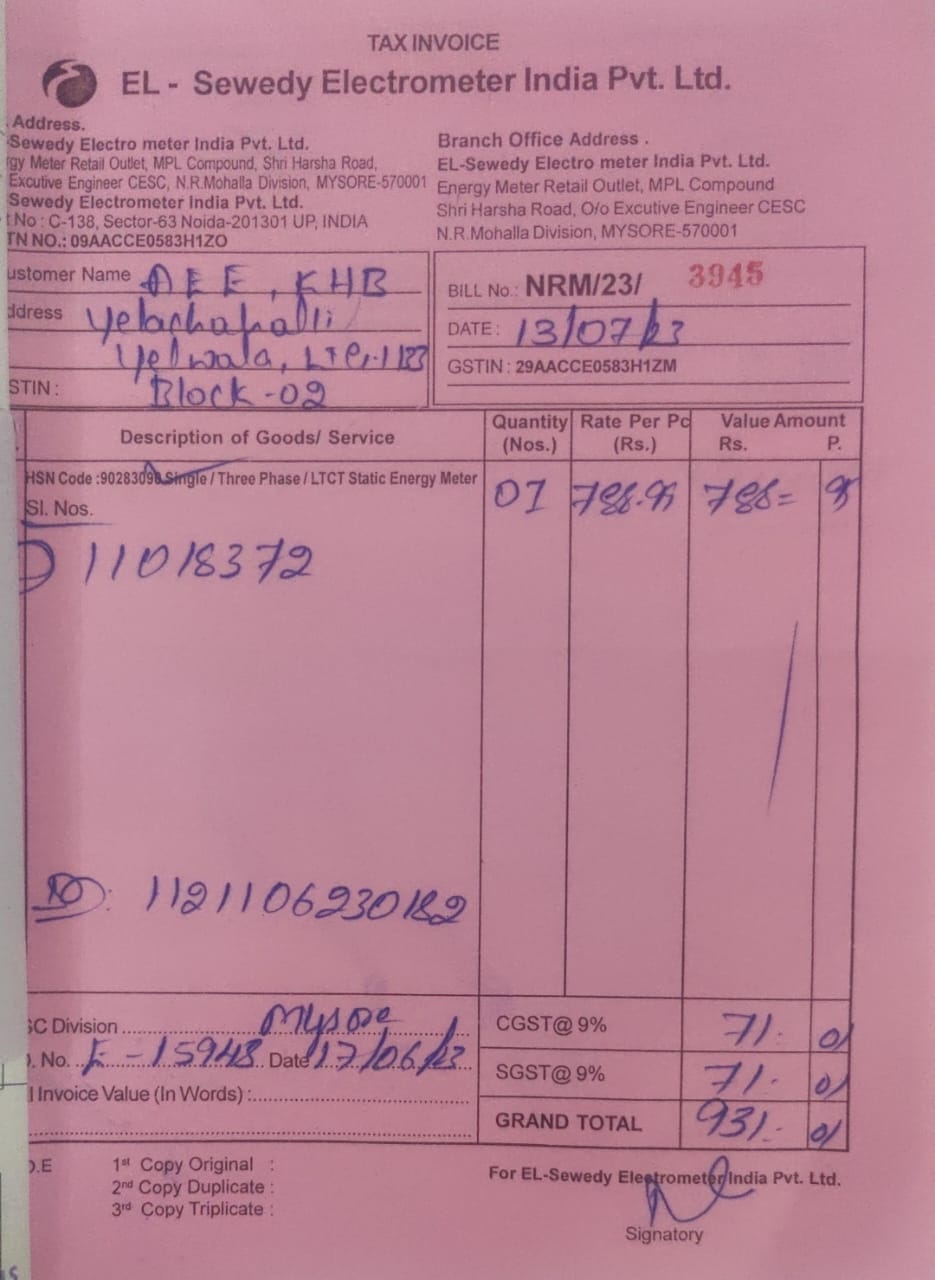 TAX INVOICE
EL - Sewedy Electrometer India Pvt. Ltd.
Address.
Sewedy Electro meter India Pvt. Ltd.
gy Meter Retail Outlet, MPL Compound, Shri Harsha Road,
Excutive Engineer CESC, N.R.Mohalla Division, MYSORE-570001
Sewedy Electrometer India Pvt. Ltd.
t No : C-138, Sector-63 Noida-201301 UP, INDIA
TN NO.: 09AACCE0583H1ZO
Branch Office Address .
EL-Sewedy Electro meter India Pvt. Ltd.
Energy Meter Retail Outlet, MPL Compound
Shri Harsha Road, O/o Excutive Engineer CESC
N.R.Mohalla Division, MYSORE-570001
ustomer Name AEE, KHB
ddress Yelachahalli
Yelwala,
STIN : Block-02
BILL No.: NRM/23/ 3945
DATE : 13/07/23
GSTIN : 29AACCE0583H1ZM
Description of Goods/ Service Quantity (Nos.) Rate Per Pc (Rs.) Value Amount Rs. P.
HSN Code :90283090 Single / Three Phase / LTCT Static Energy Meter 01 788.95 788=
Sl. Nos.
11018372
1121106230182
SC Division Mysore
. No. E-15948 Date 17/06/23
l Invoice Value (In Words) :
CGST@ 9% 71. 01
SGST@ 9% 71. 01
GRAND TOTAL 931. 01
O.E
1st Copy Original :
2nd Copy Duplicate :
3rd Copy Triplicate :
For EL-Sewedy Electrometer India Pvt. Ltd.
Signatory